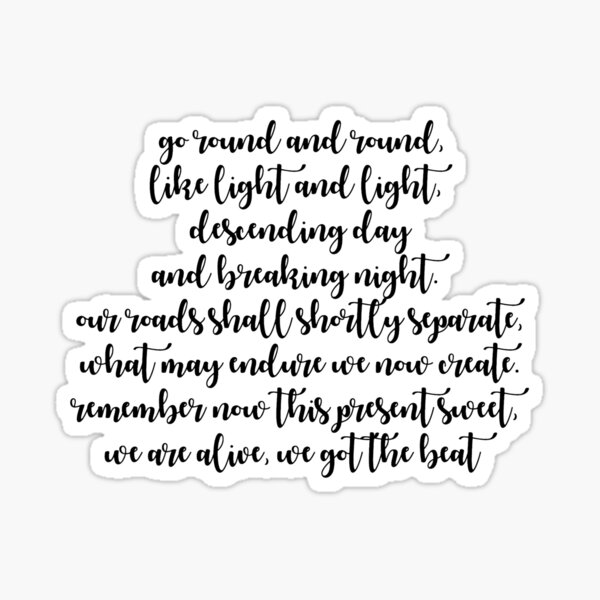 go round and round,
like light and light,
descending day
and breaking night.
our roads shall shortly separate,
what may endure we now create.
remember now this present sweet,
we are alive, we got the beat